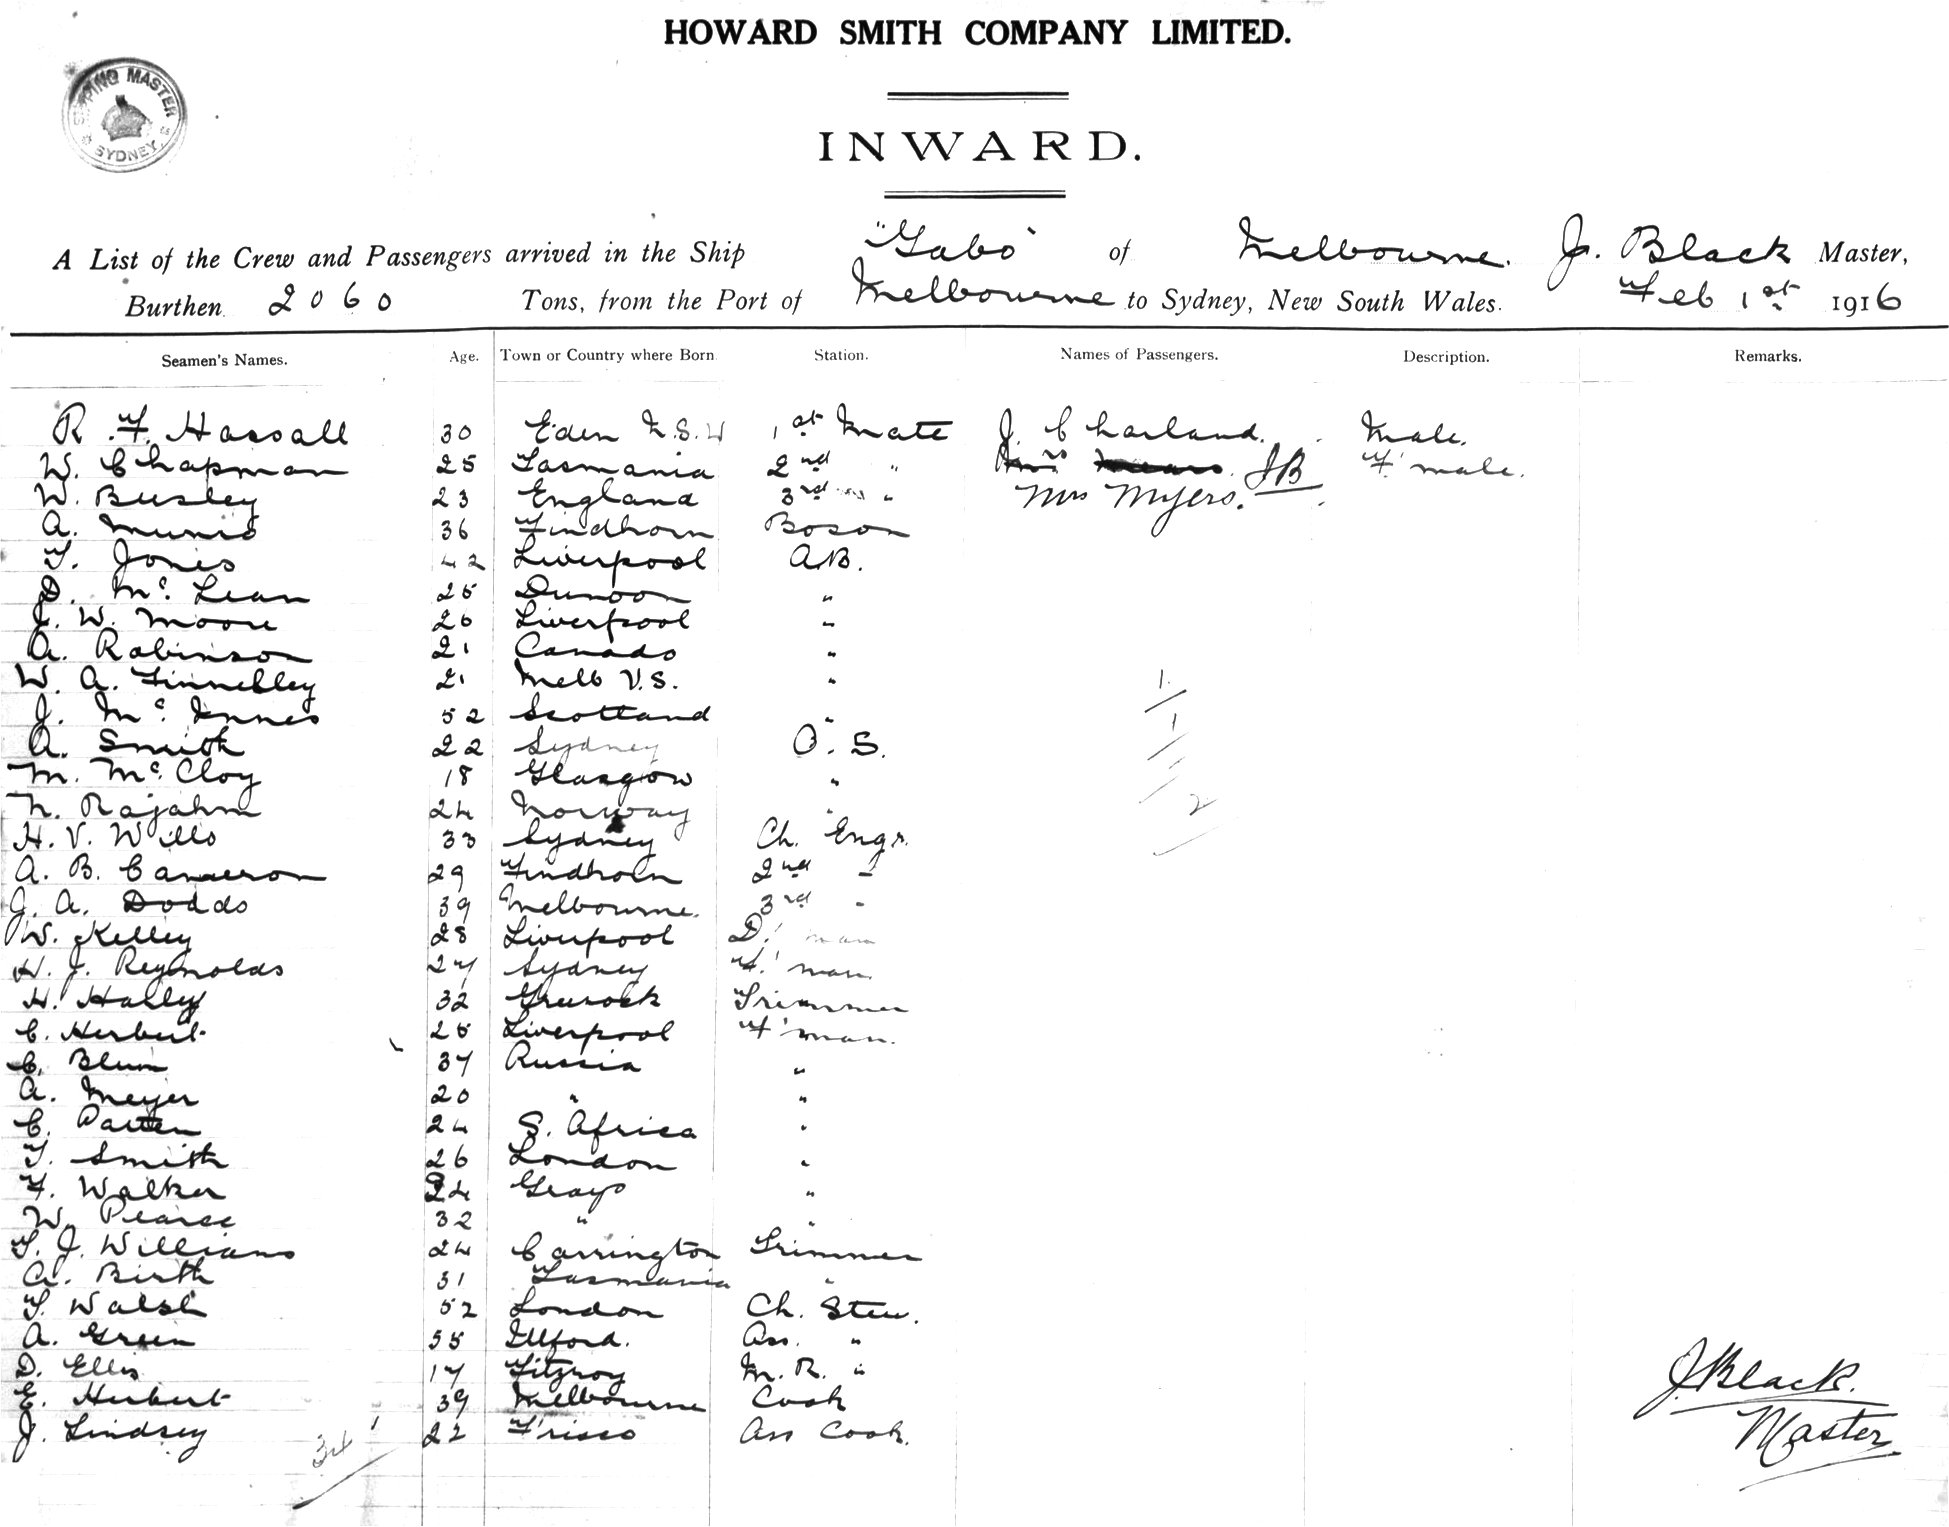 HOWARD SMITH COMPANY LIMITED.
SHIPPING MASTER
SYDNEY
INWARD.
A List of the Crew and Passengers arrived in the Ship "Gabo" of Melbourne. J. Black Master,
Burthen 2060 Tons, from the Port of Melbourne to Sydney, New South Wales. Feb 1st 1916
Seamen's Names. Age. Town or Country where Born Station. Names of Passengers. Description. Remarks.
R. F. Hassall 30 Eden N.S.W 1st Mate J. Charland. Male.
W. Chapman 25 Tasmania 2nd " Mrs JB F'male.
W. Busley 23 England 3rd " Mrs Myers.
A. Munro 36 Findhorn Boson
T. Jones 42 Liverpool A.B.
D. Mc. Lean 25 Dunoon "
J. W. Moore 26 Liverpool "
A. Robinson 21 Canada "
W. A. 21 Melb V.S. " 1.
J. Mc. Innes 52 Scotland "
A. Smith 22 Sydney O. S. 1
M. Mc. Cloy 18 Glasgow "
N. Rajahn 24 Norway " 2
H. V. Wills 33 Sydney Ch. Engr.
A. B. Cameron 29 Findhorn 2nd "
J. A. Dodds 39 Melbourne. 3rd "
W. Kelley 28 Liverpool D' man
H. J. Reynolds 27 Sydney F' man
H. Halley 32 Greenock Trimmer
C. Herbert 25 Liverpool F' man.
C. Blum 37 Russia "
A. Meyer 20 " "
C. Patten 24 S. Africa "
T. Smith 26 London "
F. Walker 24 Grays "
W. Pearce 32 " "
T. J. Williams 24 Carrington Trimmer
A. Birth 31 Tasmania "
T. Walsh 52 London Ch. Stew.
A. Green 55 Illford. Ass. "
D. Ellis 17 Fitzroy M. R. "
E. Herbert 39 Melbourne Cook
J. Lindsey 22 Frisco Ass Cook.
34
J. Black.
Master